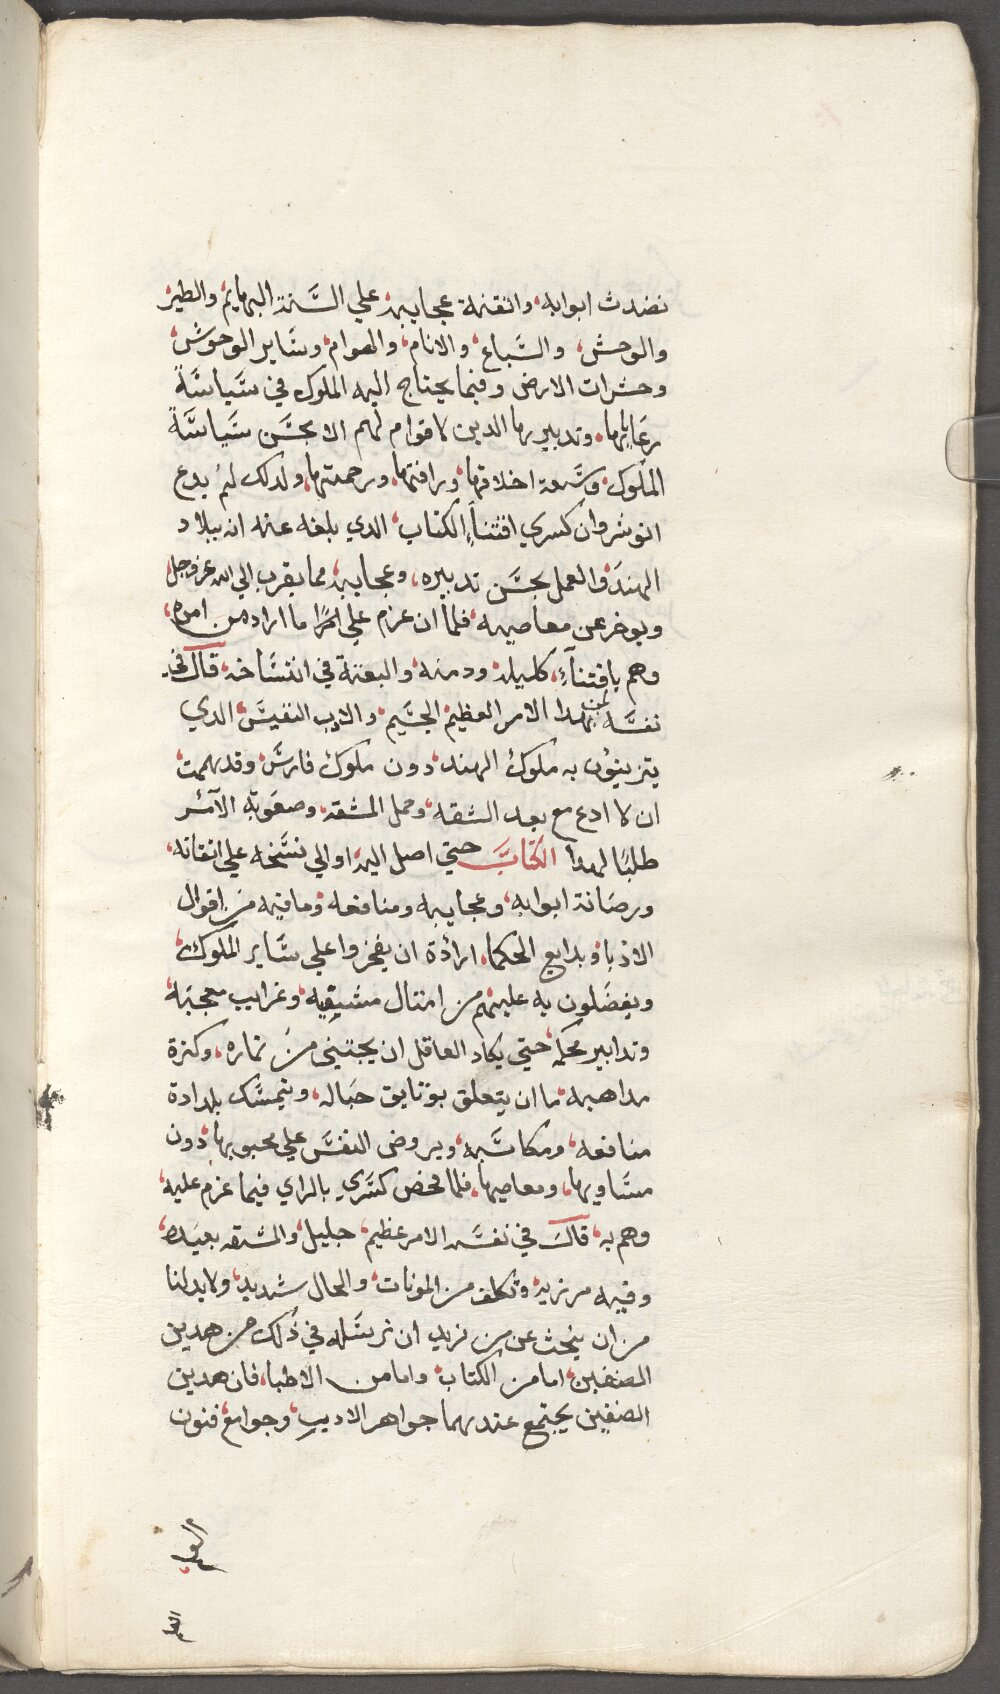 نضدت ابوابه، واتقنة عجايبه، علي السَّنة البهايم، والطير
والوحش، والسَّباع، والانام، والهوام، وسَاير الوحوش،
وحشرات الارض وفيما يحتاج اليه الملوك في سَياسَة
رعاياها، وتدبيرها الدين لا قوام لهم الا بحسَن سَياسَة
الملوك، وسَعة اخلاقها، ورافتها، ورحمتها، ولدلك لم يدع
انوشروان كسري اقتنآء الكتاب، الدي بلغه عنه انه ببلاد
الهند، والعمل بحسَن تدبيره، وعجايبه، مما يقرب الي الله عز وجل،
ويوخر عن معاصيه، فلما ان عزم علي ما اراد من امره،
وهم باقتنآء، كليله، ودمنه، والبعثة في انتسَاخه، قال في
نفسَه لهدا الامر العظيم، الجسَيم، والادب النفيسَ، الدي
يتزينون به ملوك الهند، دون ملوك فارسَ، وقد هممت،
ان لا ادع مع بعد الشقه، وحمل المشقه، وصعوبة الآمر
طلبًا لهدا الكتابَ حتي اصل اليه، اوالي نسَخه علي اتقانه،
ورصانة ابوابه، وعجايبه ومنافعه، ومافيه من اقوال
الادبا، وبدايع الحكما، ارادة ان يفخروا علي سَاير الملوك،
ويفضلون به عليهم من امتال مشيقيه، وغرايب معجبة،
وتدابير محكمه، حتي يكاد العاقل ان يجتني من تماره، وكترة
مداهبه، ما ان يتعلق بوتايق حباله، ويتمسَك بلدادة
منافعه، ومكاسَبه، ويروض النفسَ علي محبوبها، دون
مسَاويها، ومعاصيها، فلما محض كسَري بالراي فيما عزم عليه،
وهم به، قال في نفسَه الامر عظيم، جليل، والشقه بعيده،
وفيه مرزيه، وتكلف من المونات، والحال شديد، ولا بد لنا
من ان نبحث عن من نريد ان نرسَله في دلك من هدين
الصنفين، اما من الكتاب، واما من الاطبا، فان هدين
الصنفين يجتمع عندهما جواهر الاديب، وجوامع، فنون